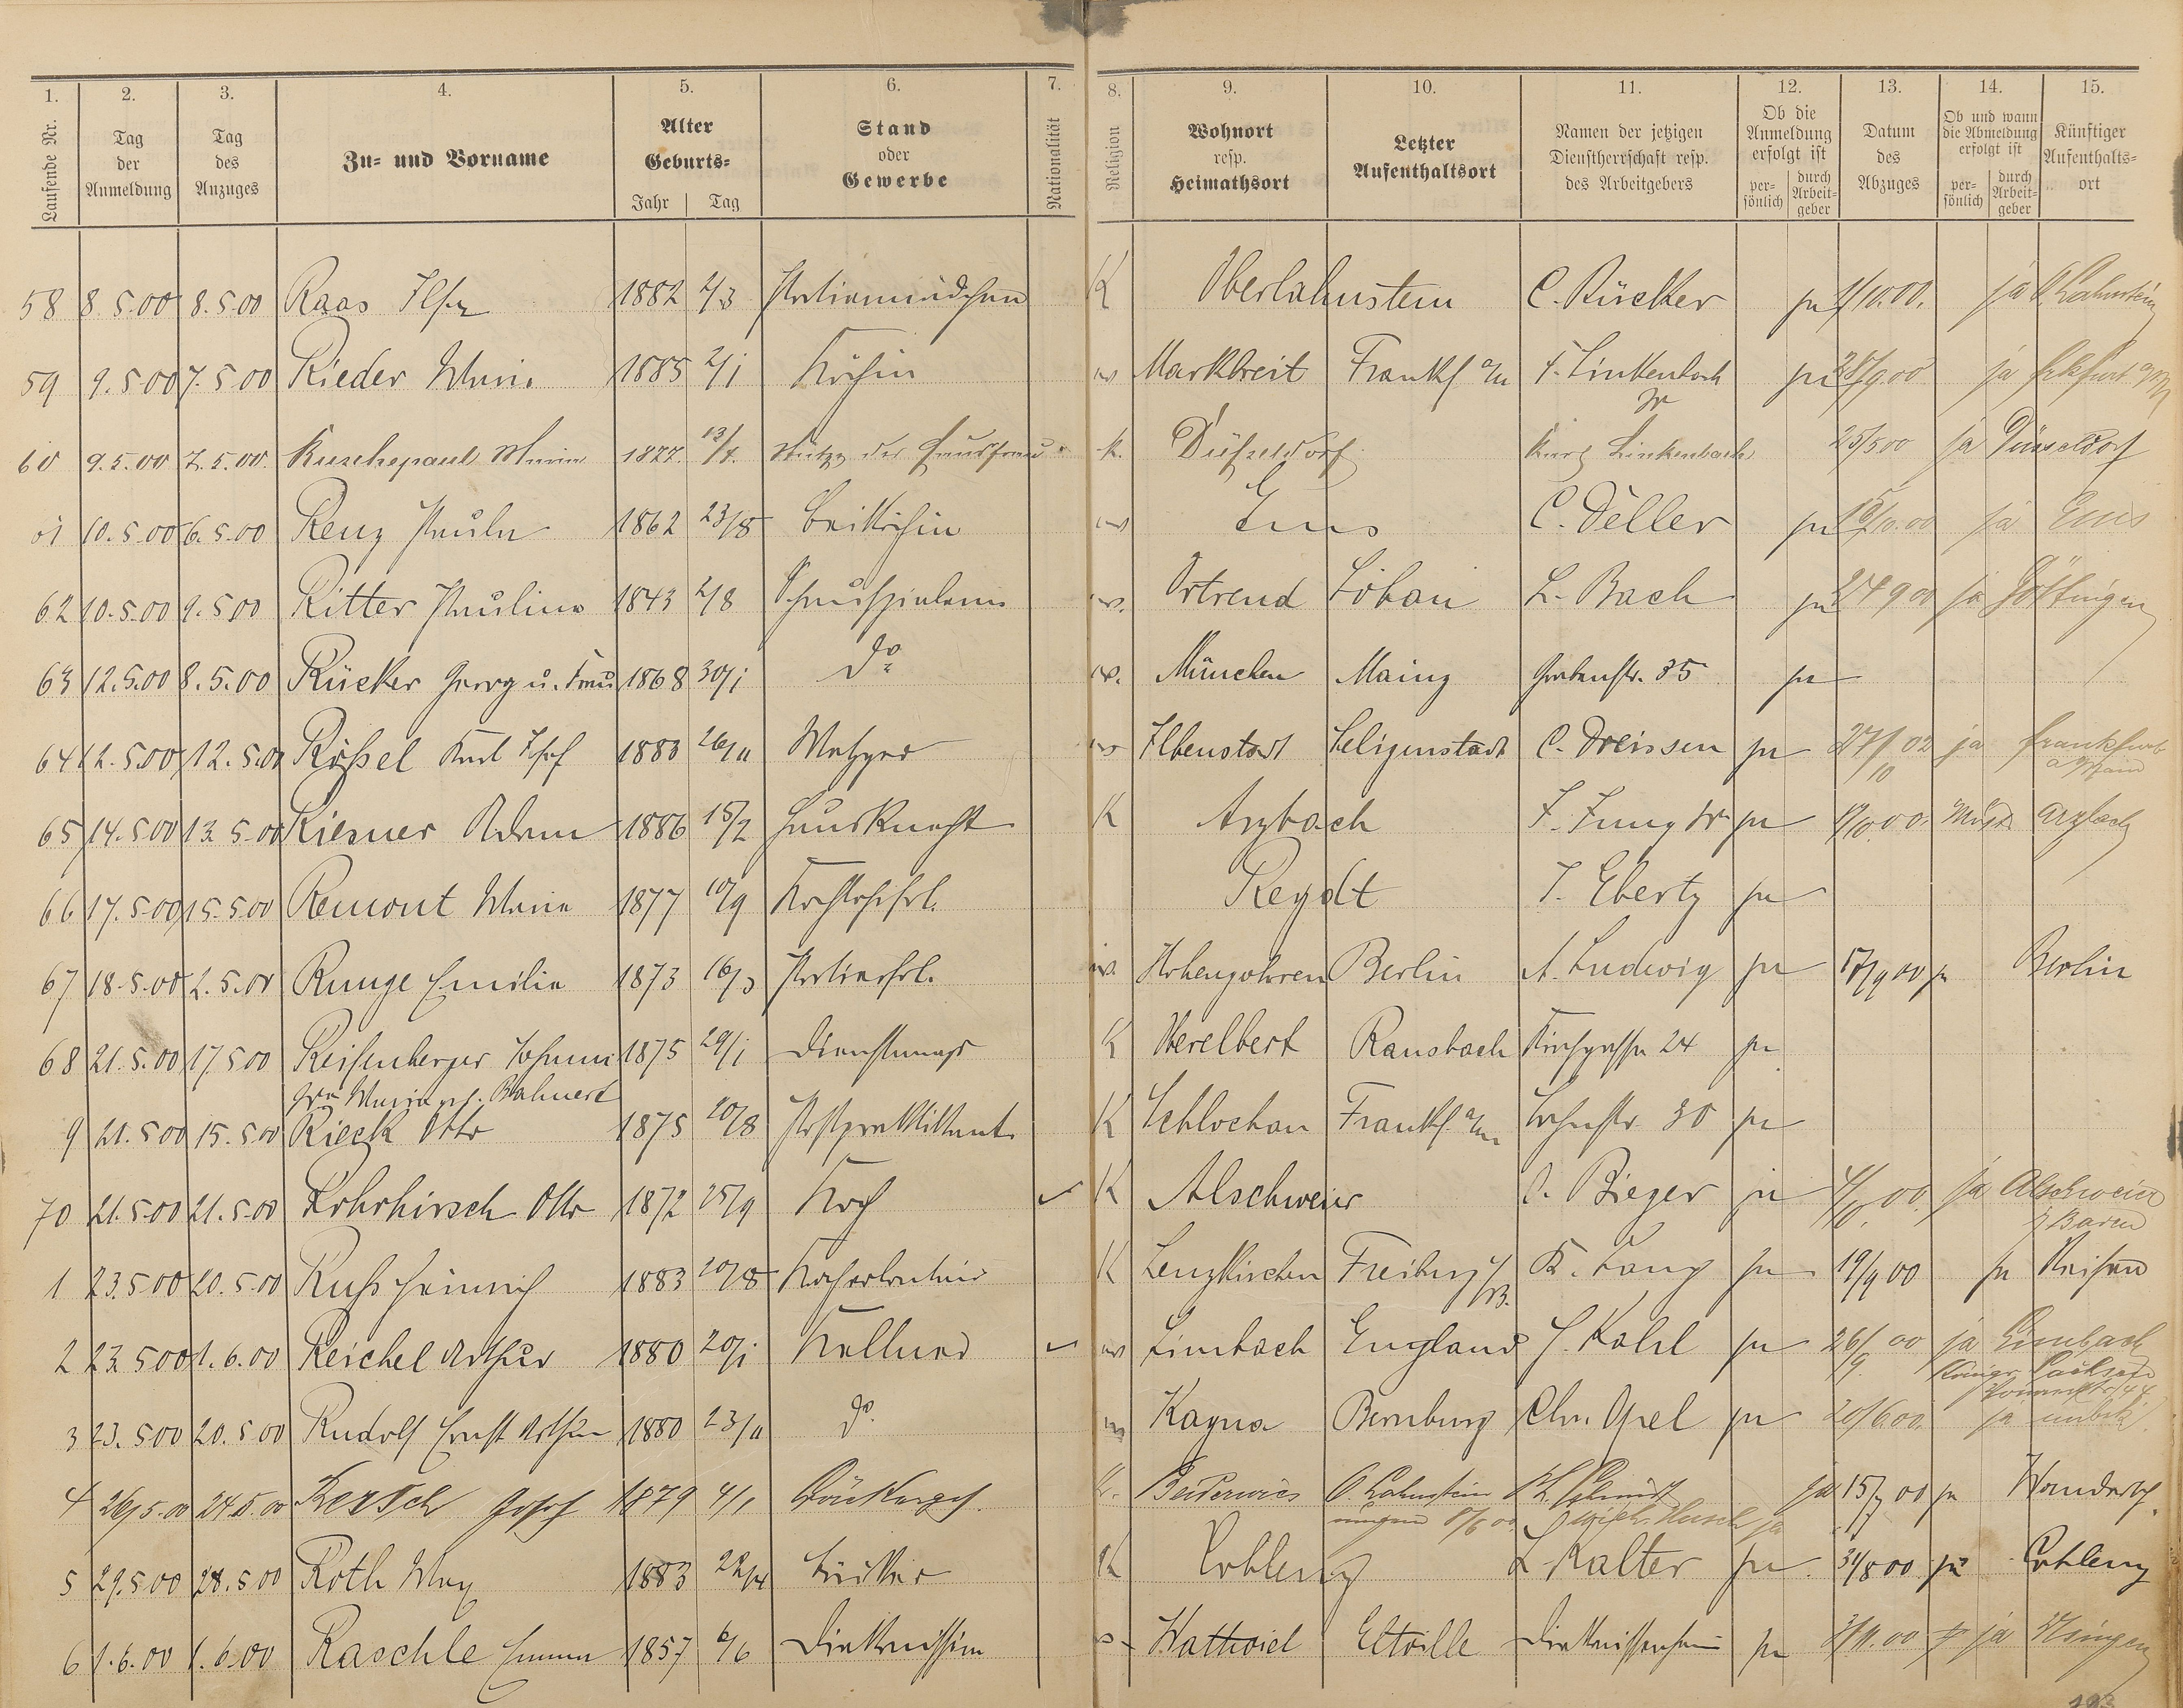 1. 2. 3. 4. 5. 6. 7. 8. 9. 10. 11. 12. 13. 14. 15.
Laufende Nr. Tag der Anmeldung Tag des Anzuges Zu- und Vorname Alter Geburts- Jahr Tag Stand oder Gewerbe Nationalität Religion Wohnort resp. Heimathsort Letzter Aufenthaltsort Namen der jetzigen Dienstherrschaft resp. des Arbeitgebers Ob die Anmeldung erfolgt ist persönlich durch Arbeitgeber Datum des Abzuges Ob und wann die Abmeldung erfolgt ist persönlich durch Arbeitgeber Künftiger Aufenthaltsort
58 8.5.00 8.5.00 Raas Else 1882 2/3 K Oberlahnstein C. Rücker ja 1/10.00. ja O. Lahnstein
59 9.5.00 7.5.00 Rieder Marie 1885 2/1 Köchin Marktbreit Frankf. a/M F. Linkenbach ja 28/9.00 ja Frkfurt a/M
60 9.5.00 7.5.00 1877. Stütze der Hausfrau k. Düßeldorf Karl Linkenbach 25/5 00 ja Düsseldorf
61 10.5.00 6.5.00 Renz Paula 1862 23/8 Beiköchin Ems C. Deller ja 15/10.00 ja Ems
62 10.5.00 9.5.00 Ritter Pauline 1843 2/8 Schauspielerin Ortrend Löbau L. Bach ja 24 9 00 ja Göttingen
63 12.5.00 8.5.00 Rücker Georg u. Frau 1868 30/1 do München Mainz Grabenstr. 35 ja
64 12.5.00 12.5.00 Rößel Karl Josef 1883 26/11 Metzger Ilbenstadt Seligenstadt C. Dreissen ja 27/10 02 ja Frankfurt a/Main
65 14.5.00 13.5.00 Kiesner Adam 1886 15/2 Hausknecht K Arzbach F. Jung Wr ja Arzbach
66 17.5.00 15.5.00 Remont Maria 1877 10/9 Kochlehrfrl. Reydt J. Ebertz ja
67 18.5.00 2.5.00 Runge Emilie 1873 16/3 Hohengohren Berlin A. Ludwig ja 17/9 00 ja Berlin
68 21.5.00 17.5.00 Reisenberger Johann 1875 29/1 Dienstmagd K Oberelbert Ransbach Kirchgasse 24 ja
9 21.5.00 15.5.00 Rieck Otto 1875 20/8 Postpraktikant K Schlochau Frankf. a/M Lahnstr. 30 ja
70 21.5.00 21.5.00 Rohrhirsch Otto 1872 25/9 Koch K Alschweier O. Bieger ja 4/10. 00. ja Alschweier i/Baden
1 23.5.00 20.5.00 Ruß Heinrich 1883 20/8 K Lenzkirchen Freiburg i/B. K. Lang ja 19/9 00 ja Reisen
2 23.5.00 1.6.00 Reichel Arthur 1880 20/1 Kellner Limbach England J. Kahl ja 26/9. 00 ja Limbach
3 23.5.00 20.5.00 Rudolf Ernst Arthur 1880 23/11 do Kayna Bernburg Chr. Opel ja 20/6.00. ja unbek.
4 26/5.00 24.5.00 Josef 1879 4/1 K. O. Lahnstein ja 15/7 00 ja
5 29.5.00 28.5.00 Roth Max 1883 22/4 K Coblenz L. Kalter ja 31/8 00 ja Coblenz
6 1.6.00 1.6.00 Raschle Emma 1857 6/6 Diakonissin Hattwiel Eltville Diakonissenheim ja 3/11.00 ja